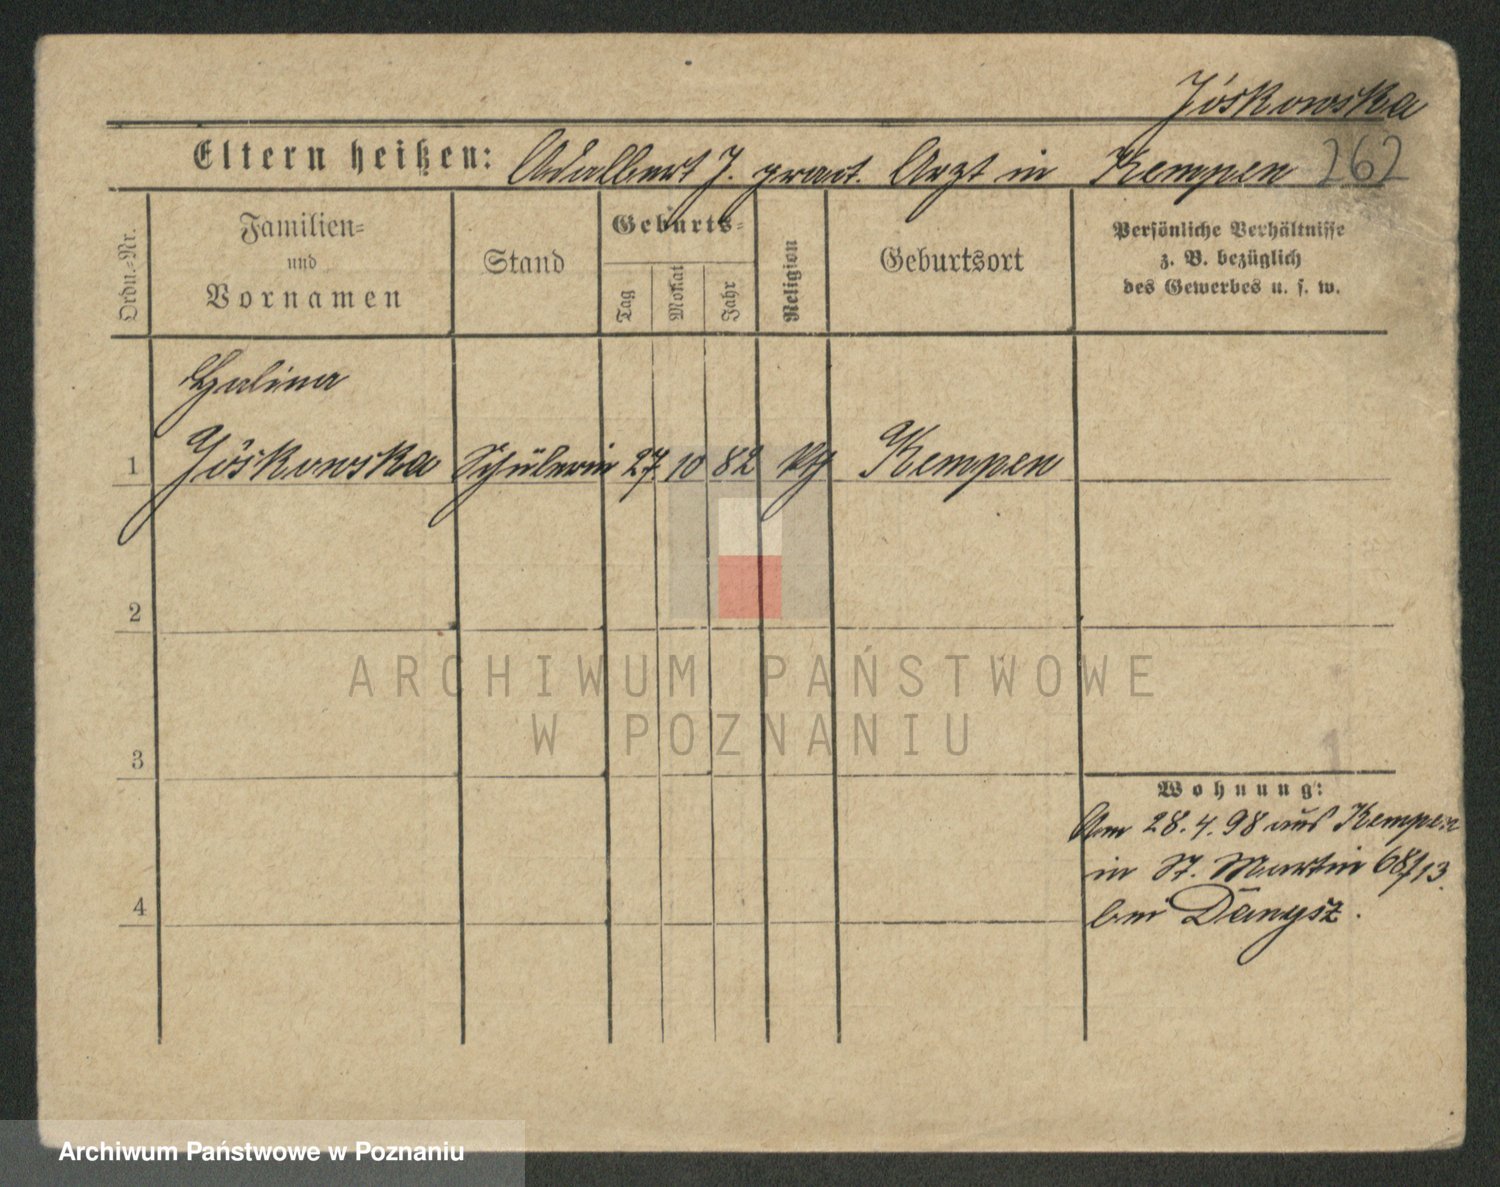 Jóskowska
Eltern heißen: Adalbert J. pract. Arzt in Kempen 262
Ordn.-Nr.
Familien-
und
Vornamen
Stand
Geburts-
Tag
Monat
Jahr
Religion
Geburtsort
Persönliche Verhältnisse
z. B. bezüglich
des Gewerbes u. s. w.
Halina
1 Jóskowska Schülerin 27 10 82 Kempen
2
3
4
Wohnung:
Am 28.4.98 aus Kempen
in St. Martin 68/13.
bei Danysz.
1
ARCHIWUM PAŃSTWOWE
W POZNANIU
Archiwum Państwowe w Poznaniu